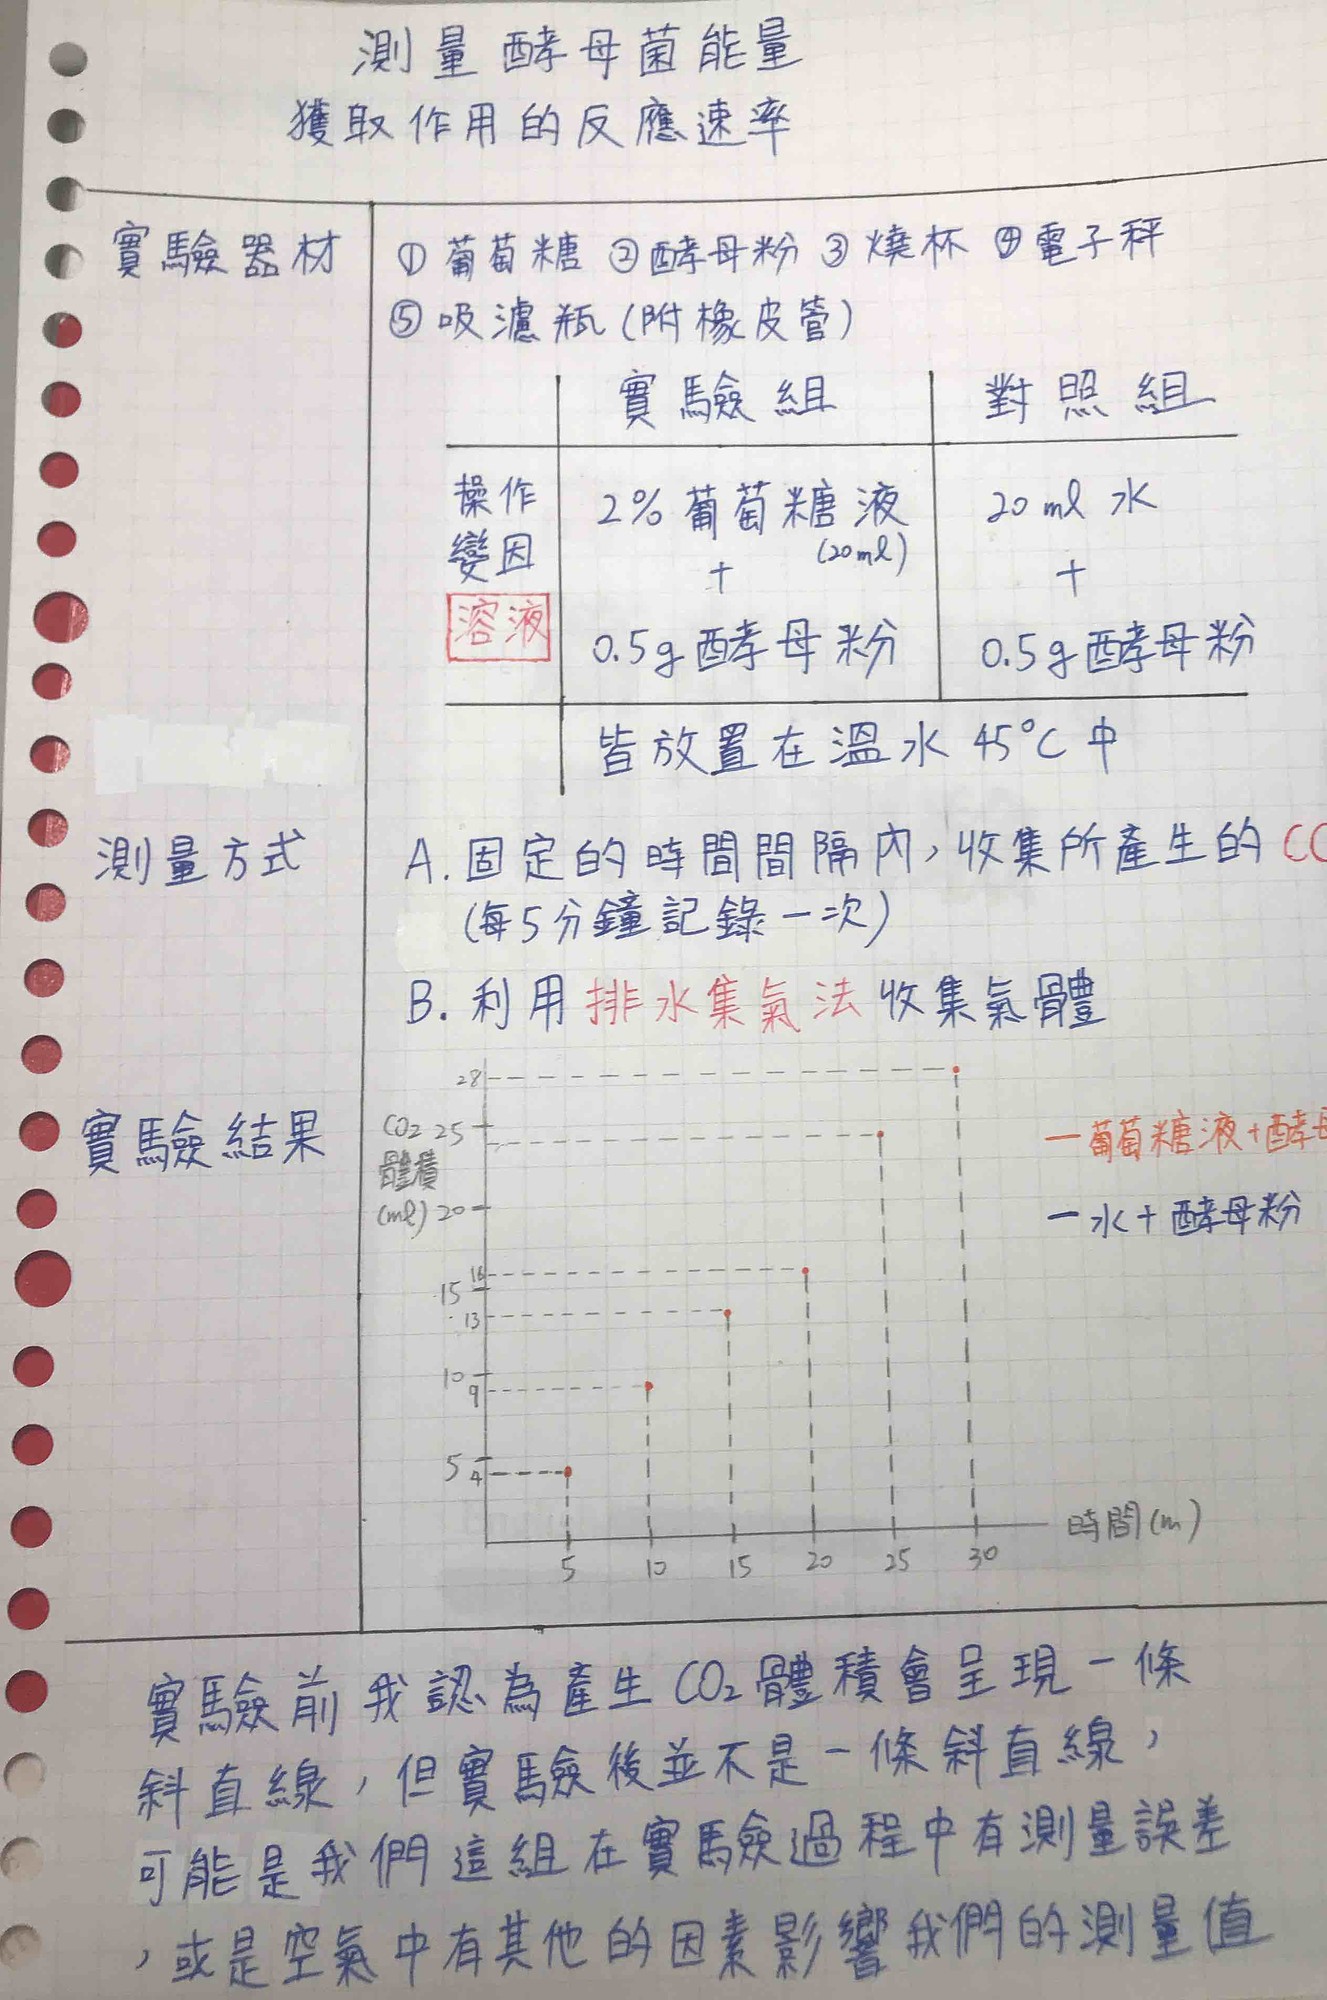 測量酵母菌能量
獲取作用的反應速率
實驗器材
① 葡萄糖 ② 酵母粉 ③ 燒杯 ④ 電子秤
⑤ 吸濾瓶(附橡皮管)
實驗組 對照組
操作
變因
溶液
2% 葡萄糖液
(20ml)
+
0.5g 酵母粉
20 ml 水
+
0.5g 酵母粉
皆放置在溫水 45°C 中
測量方式
A. 固定的時間間隔內,收集所產生的 CO
(每5分鐘記錄一次)
B. 利用排水集氣法收集氣體
實驗結果
CO2
體積
(ml)
28
25
20
16
15
13
10
9
5
4
5 10 15 20 25 30
時間(m)
一葡萄糖液+酵母
一水+酵母粉
實驗前我認為產生 CO2 體積會呈現一條
斜直線,但實驗後並不是一條斜直線,
可能是我們這組在實驗過程中有測量誤差
,或是空氣中有其他的因素影響我們的測量值